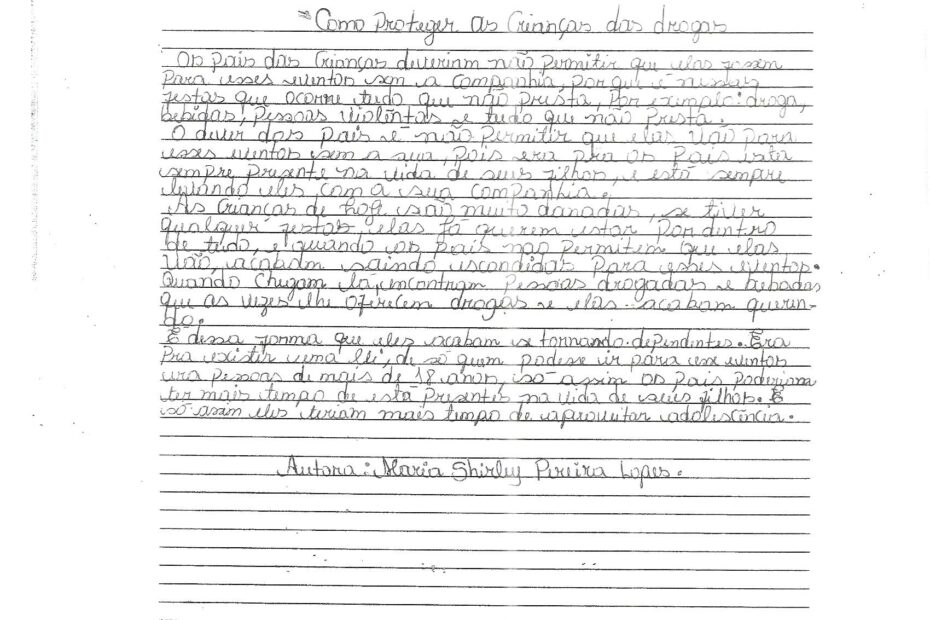 Como Proteger as Crianças das drogas
Os pais das Crianças deveriam não Permitir que elas fossem
Para esses eventos sem a Companhia, Por que é nessas
festas que ocorre tudo que não presta, Por exemplo: droga,
bebidas, Pessoas violentas e tudo que não Presta.
O dever dos Pais é não Permitir que elas vão Para
esses eventos sem a sua, Pois era pra os Pais está
sempre Presente na vida de seus filhos, e está sempre
levando eles com a sua Companhia.
As Crianças de hoje são muito danadas, se tiver
qualquer festas, elas já querem estar Por dentro
de tudo, e quando os pais não Permitem que elas
vão, acabam saindo escondidas Para esses eventos.
Quando Chegam lá, encontram Pessoas drogadas e bebadas
que as vezes lhe oferecem drogas e elas acabam queren-
do.
É dessa forma que eles acabam se tornando dependentes. Era
Pra existir uma lei, de só quem podese ir para esse eventos
era Pessoas de mais de 18 anos, só assim os Pais Poderiam
ter mais tempo de está Presentes na vida de seus filhos. E
só assim eles teriam mais tempo de aproveitar adolescência.
Autora: Maria Shirley Pereira Lopes.